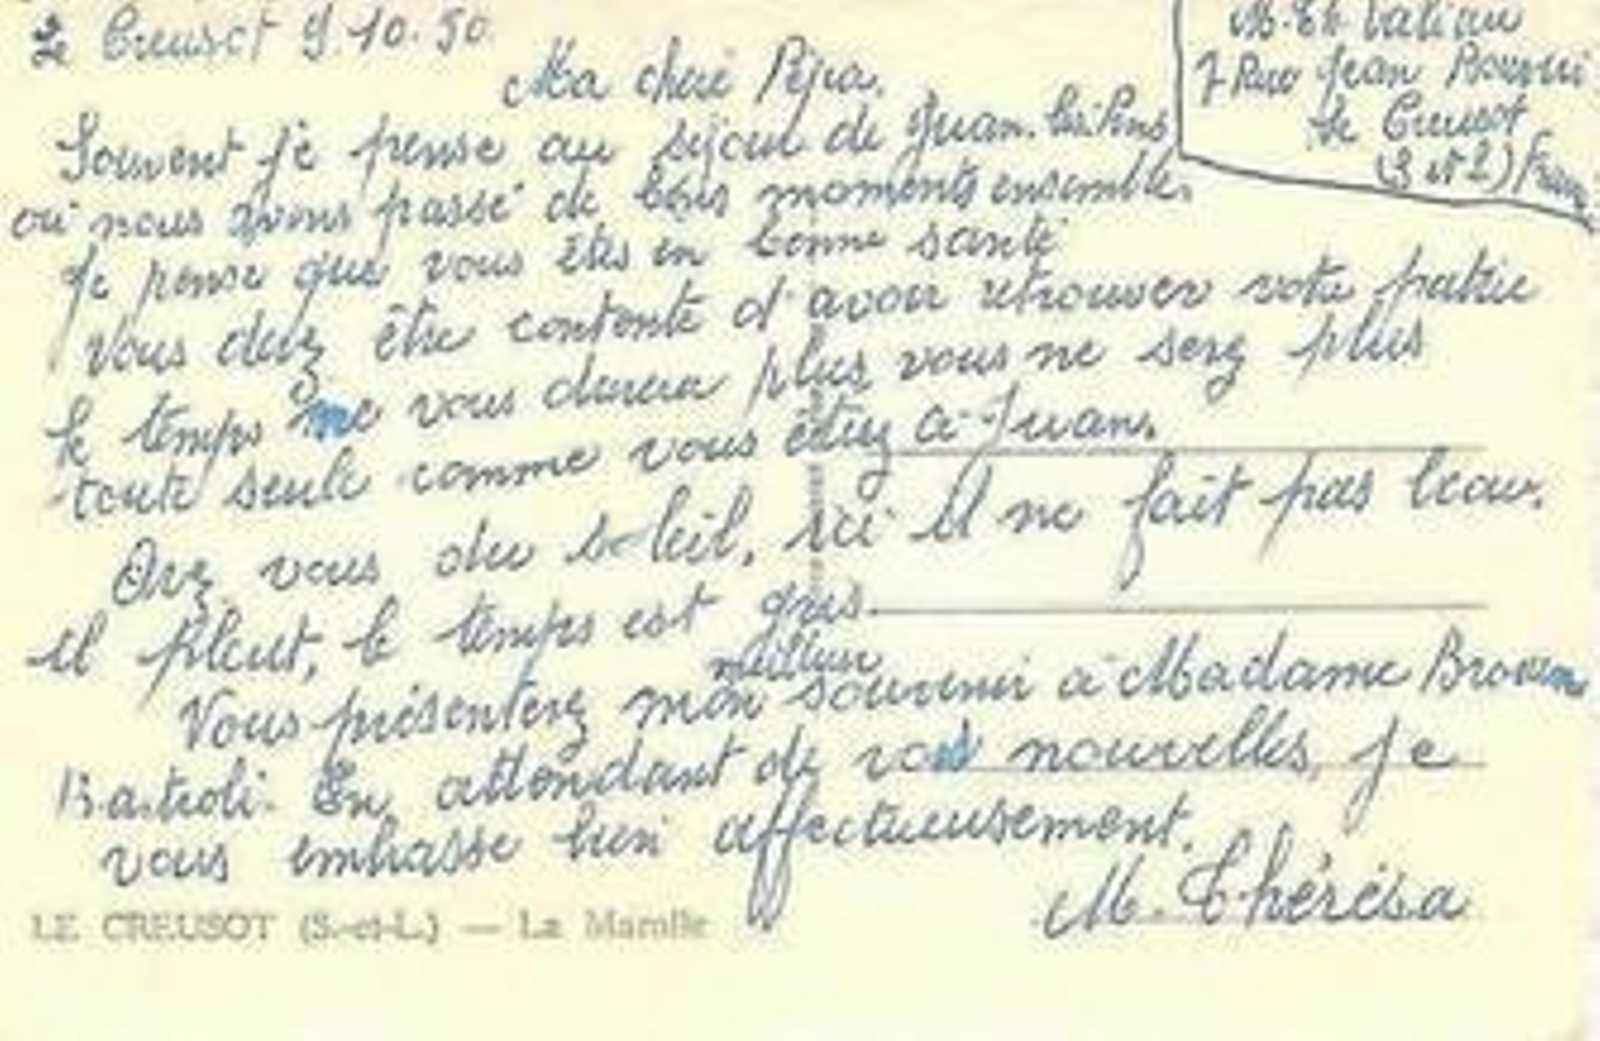 Le Creusot 9.10.50.
M. Th.
7 Rue Jean
Le Creusot
(S et L) France
Ma chère Pepa.
Souvent je pense au séjour de Juan. les. Pins
où nous avons passé de bons moments ensemble.
Je pense que vous êtes en bonne santé
Vous devez être contente d'avoir retrouver votre patrie
le temps ne vous durera plus vous ne serez plus
toute seule comme vous étiez à Juan.
Avez vous du soleil, ici il ne fait pas beau.
il pleut, le temps est gris.
meilleur
Vous présenterez mon souvenir à Madame
Bartroli. En attendant de vos nouvelles, je
vous embrasse bien affectueusement.
M. Thérésa
LE CREUSOT (S.-et-L.) — La Marolle